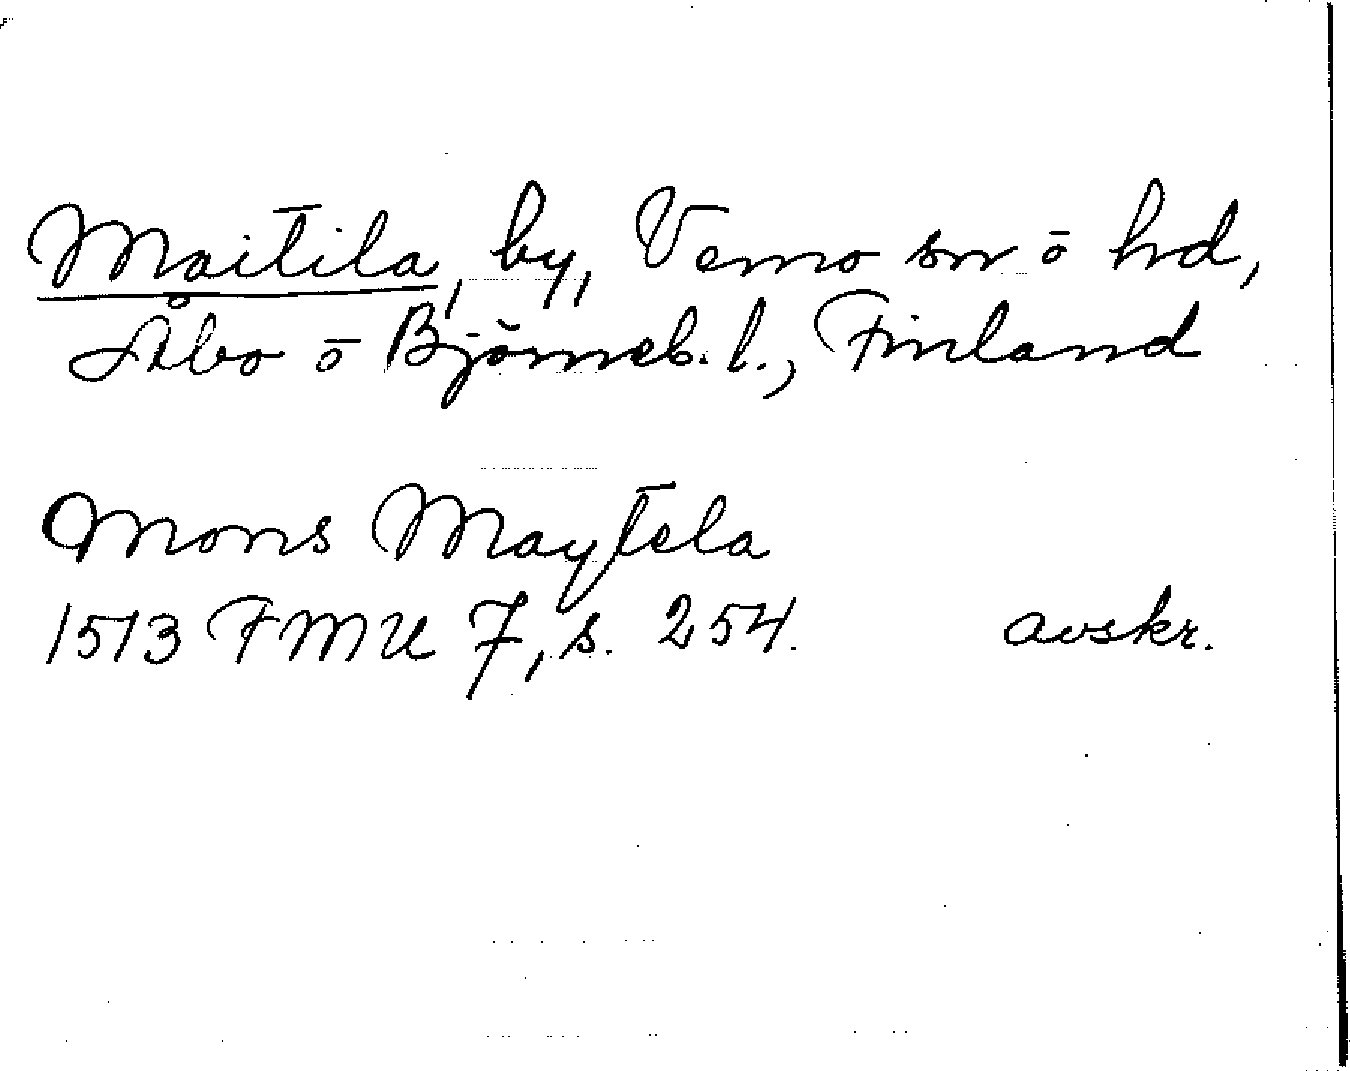 Maitila, by, Vemo sn ō hd,
Åbo ō Björneb. l., Finland
Mons Maytela
1513 FMU 7, s. 254. avskr.